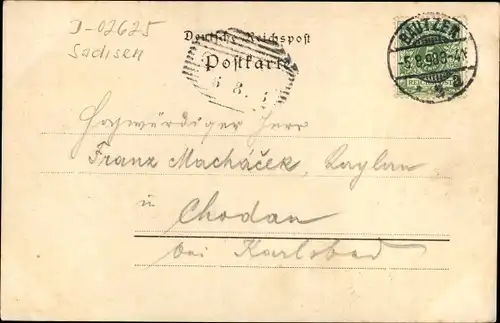 D-02625
Sachsen
Deutsche Reichspost
Postkarte
6 8
BAUTZEN
5 8 99 3-4
a
Hogwürdiger Herr
Franz Macháček, Kaplan
u
Chodau
bei Karlsbad